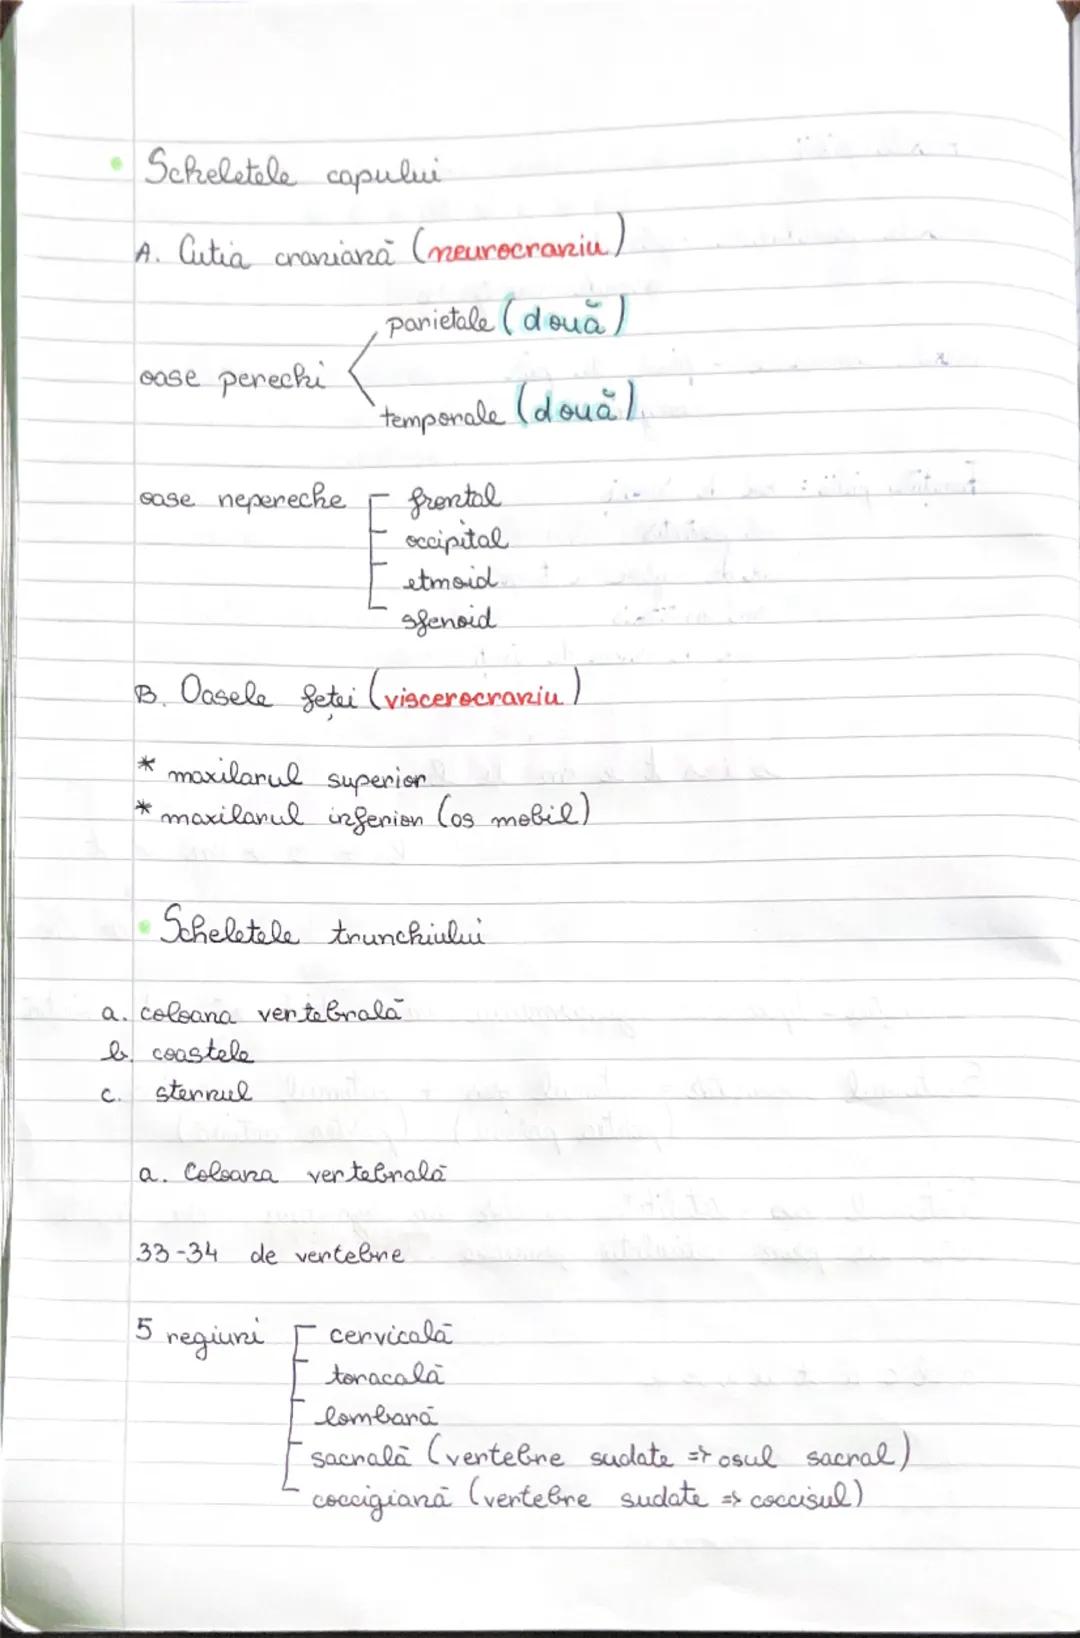 Scheletele capului
A. Cutia craniană (neurocraniu)
parietale (două)
oase perechi
temporale (două)
oase nepereche frontal
occipital
etmoid
sfenoid
B. Oasele feței (viscerocraniu)
* maxilarul superior
* maxilarul inferior (os mobil)
Scheletele trunchiului
a. coloana vertebrală
b. coastele
c. sternul
a. Coloana vertebrală
33-34 de vertebre
5 regiuni cervicală
toracală
lombară
sacrală (vertebre sudate => osul sacral)
coccigiană (vertebre sudate => coccisul)